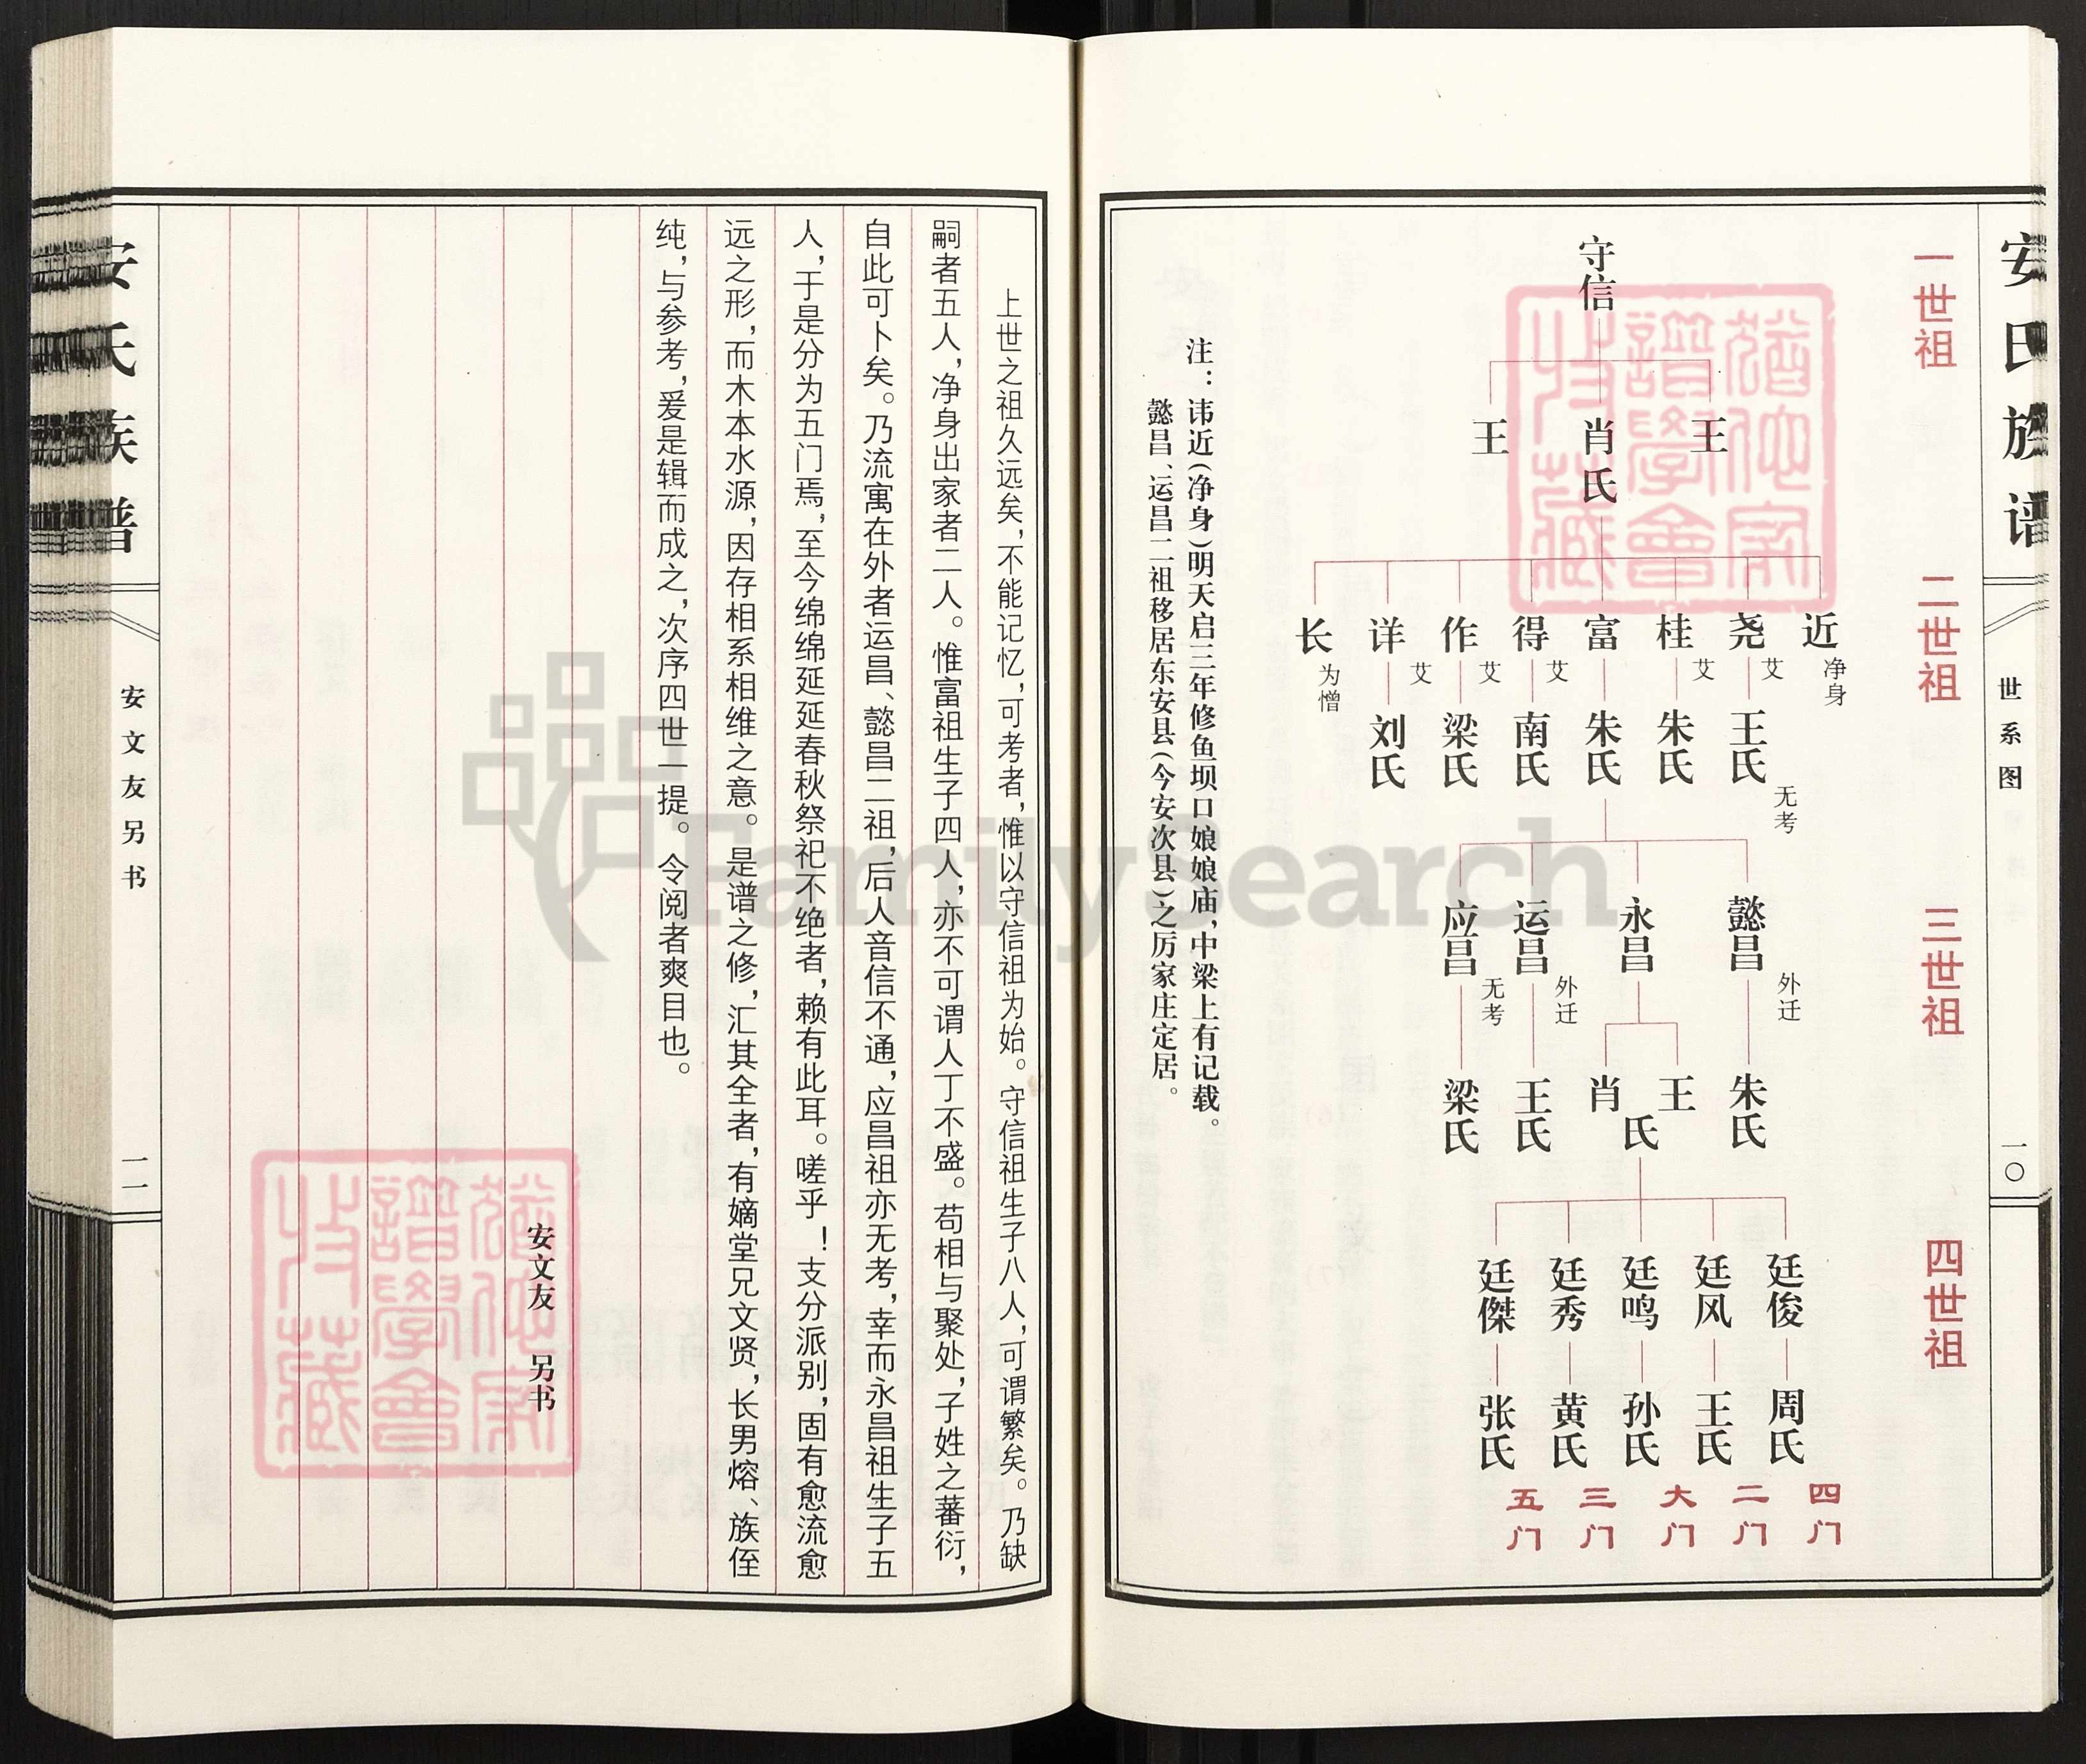 安氏族谱
世系图
一〇
一世祖
守信
王 肖 王
氏
二世祖
近 净身
尧 艾 王氏 无考
桂 艾 朱氏
富 朱氏
得 艾 南氏
作 艾 梁氏
详 艾 刘氏
长 为憎
三世祖
懿昌 外迁 朱氏
永昌 王 肖 氏
运昌 外迁 王氏
应昌 无考 梁氏
四世祖
廷俊 周氏 四门
廷风 王氏 二门
廷鸣 孙氏 大门
廷秀 黄氏 三门
廷傑 张氏 五门
注：讳近（净身）明天启三年修鱼坝口娘娘庙，中梁上有记载。
懿昌、运昌二祖移居东安县（今安次县）之厉家庄定居。
上世之祖久远矣，不能记忆，可考者，惟以守信祖为始。守信祖生子八人，可谓繁矣。乃缺
嗣者五人，净身出家者二人。惟富祖生子四人，亦不可谓人丁不盛。苟相与聚处，子姓之蕃衍，
自此可卜矣。乃流寓在外者运昌、懿昌二祖，后人音信不通，应昌祖亦无考，幸而永昌祖生子五
人，于是分为五门焉，至今绵绵延延春秋祭祀不绝者，赖有此耳。嗟乎！支分派别，固有愈流愈
远之形，而木本水源，因存相系相维之意。是谱之修，汇其全者，有嫡堂兄文贤，长男熔、族侄
纯，与参考，爰是辑而成之，次序四世一提。令阅者爽目也。
安文友 另书
安氏族谱
安文友另书
一一
猶他家譜學會收藏
猶他家譜學會收藏
FamilySearch